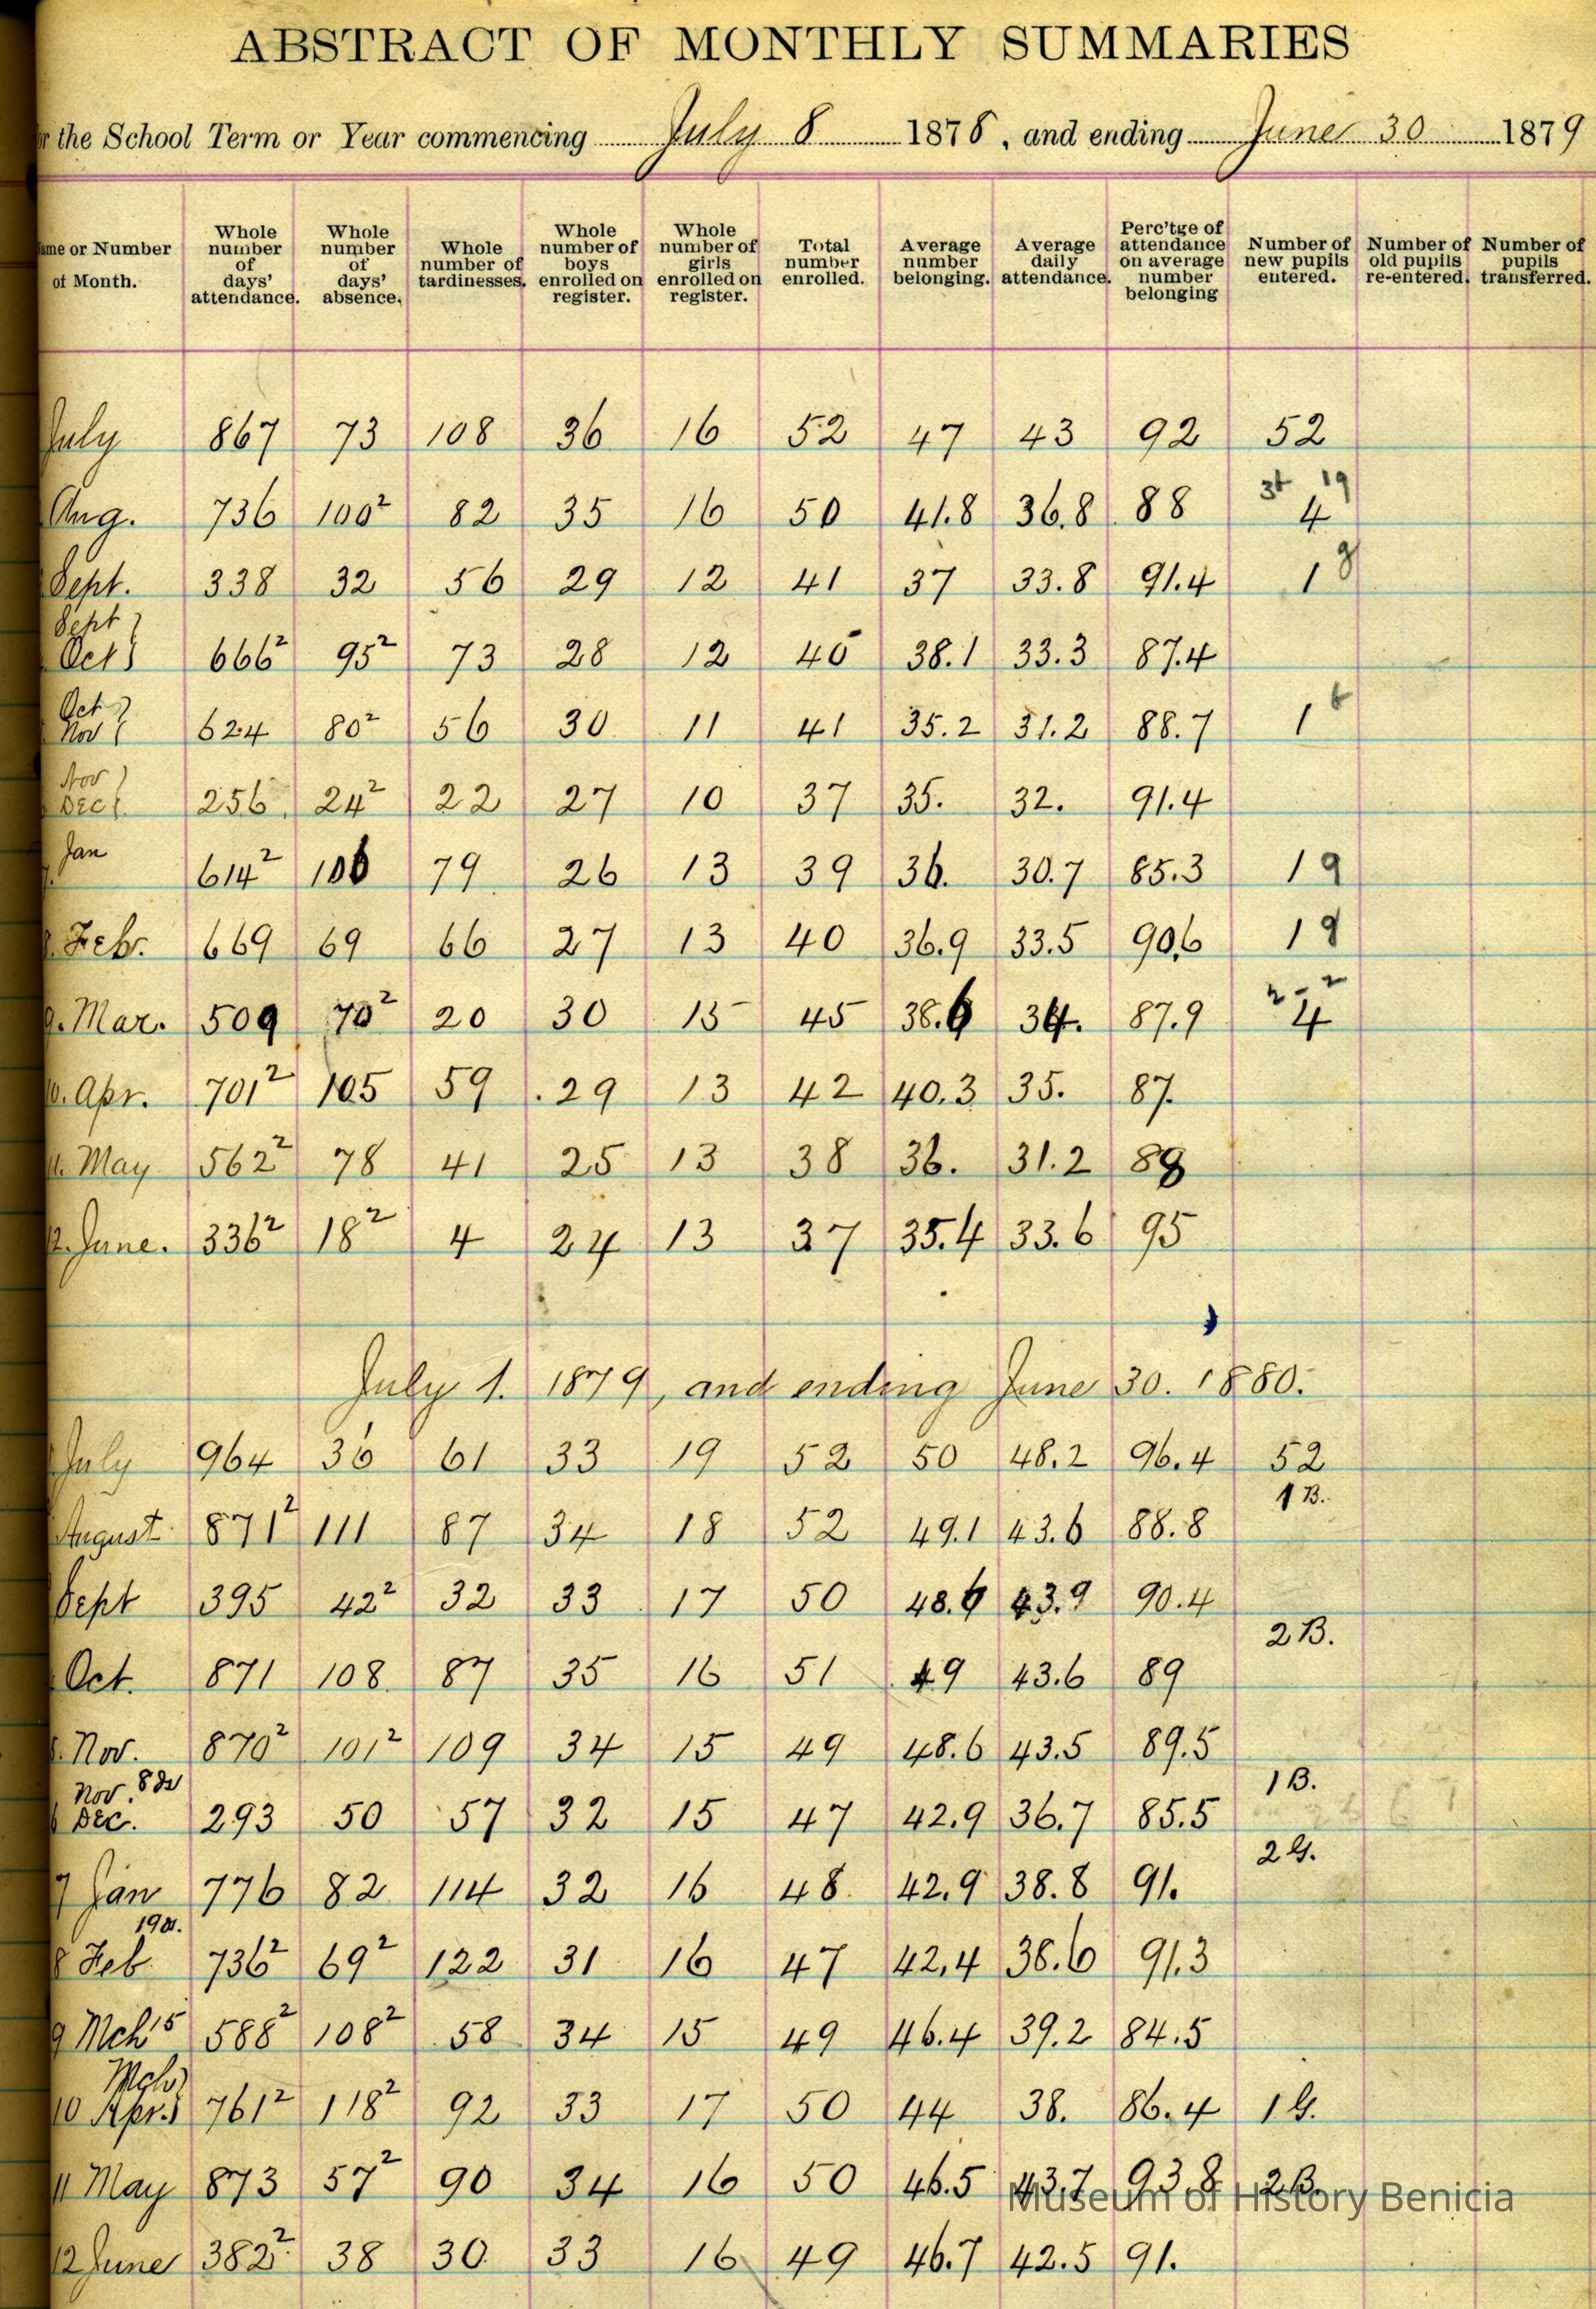 ABSTRACT OF MONTHLY SUMMARIES
the School Term or Year commencing July 8 1878, and ending June 30 1879
Name or Number of Month. Whole number of days' attendance. Whole number of days' absence. Whole number of tardinesses. Whole number of boys enrolled on register. Whole number of girls enrolled on register. Total number enrolled. Average number belonging. Average daily attendance. Perc'tge of attendance on average number belonging Number of new pupils entered. Number of old pupils re-entered. Number of pupils transferred.
July 867 73 108 36 16 52 47 43 92 52
Aug. 736 100² 82 35 16 50 41.8 36.8 88 4
Sept. 338 32 56 29 12 41 37 33.8 91.4 1
Sept Oct 666² 95² 73 28 12 40 38.1 33.3 87.4
Oct Nov 624 80² 56 30 11 41 35.2 31.2 88.7 1
Nov Dec 256 24² 22 27 10 37 35. 32. 91.4
Jan 614² 106 79 26 13 39 36. 30.7 85.3 1 g
Febr. 669 69 66 27 13 40 36.9 33.5 90.6 1 g
9. Mar. 509 70² 20 30 15 45 38.6 34. 87.9 4
10. Apr. 701² 105 59 29 13 42 40.3 35. 87.
11. May 562² 78 41 25 13 38 36. 31.2 88
12. June. 336² 18² 4 24 13 37 35.4 33.6 95
July 1. 1879, and ending June 30. 1880.
July 964 36 61 33 19 52 50 48.2 96.4 52
1 B.
August 871² 111 87 34 18 52 49.1 43.6 88.8
Sept 395 42² 32 33 17 50 48.6 43.9 90.4
2 B.
Oct. 871 108 87 35 16 51 49 43.6 89
Nov. 870² 101² 109 34 15 49 48.6 43.5 89.5
1 B.
Nov. 8 da
6 Dec. 293 50 57 32 15 47 42.9 36.7 85.5
2 G.
7 Jan 776 82 114 32 16 48 42.9 38.8 91.
19 d.
8 Feb 736² 69² 122 31 16 47 42.4 38.6 91.3
9 Mch 15 588² 108² 58 34 15 49 46.4 39.2 84.5
Mch
10 Apr. 761² 118² 92 33 17 50 44 38. 86.4 1 G.
11 May 873 57² 90 34 16 50 46.5 43.7 93.8 2 B.
Museum of History Benicia
12 June 382² 38 30 33 16 49 46.7 42.5 91.